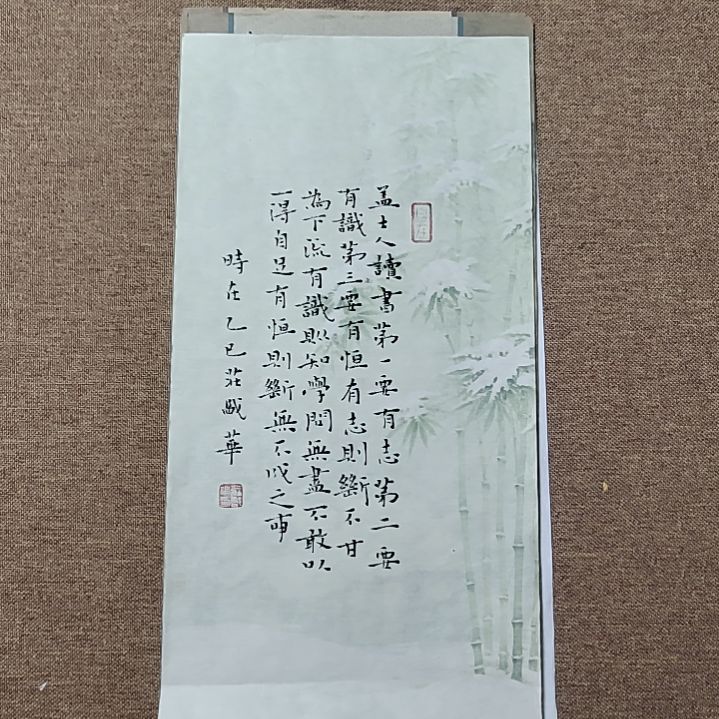 盖士人讀書第一要有志第二要
有識第三要有恒有志則斷不甘
為下流有識則知學問無盡不敢以
一得自足有恒則斷無不成之事
時在乙巳莊成華